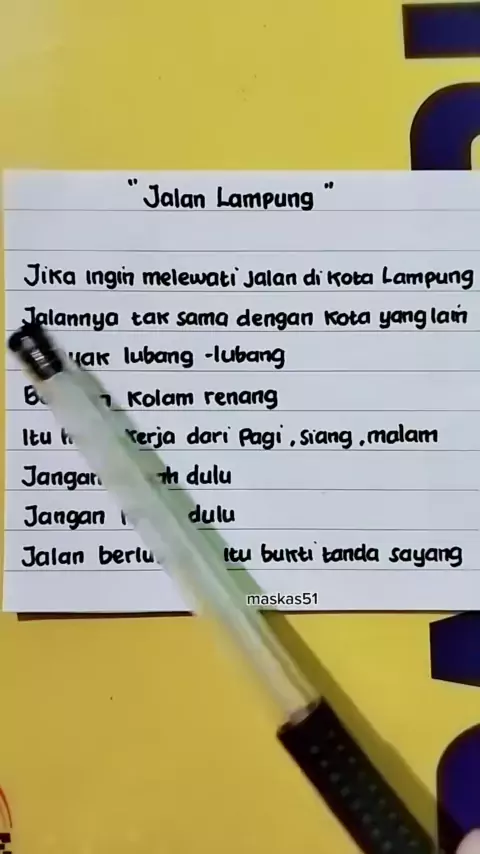 "Jalan Lampung"
Jika ingin melewati jalan di kota Lampung
Jalannya tak sama dengan kota yang lain
lubang-lubang
kolam renang
Itu kerja dari Pagi, siang, malam
Jangan dulu
Jangan dulu
Jalan itu bukti tanda sayang
maskas51